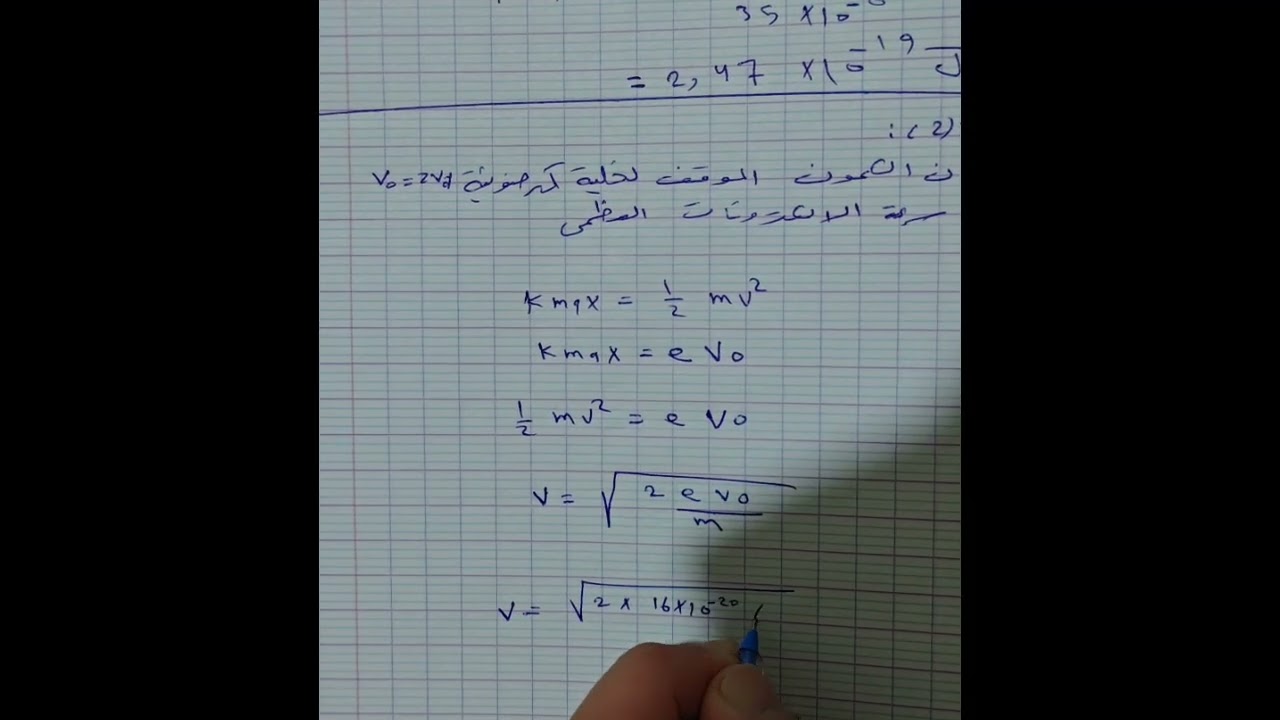 35 × 10
= 2,47 × 10⁻¹⁹ J
(2) :
الكمون الموقف لخلية كهرضوئية V₀ = 2V
سرعة الالكترونات العظمى
Kmax = 1/2 mv²
Kmax = e V₀
1/2 mv² = e V₀
V = √(2 e V₀/m)
V = √(2 × 16×10⁻²⁰